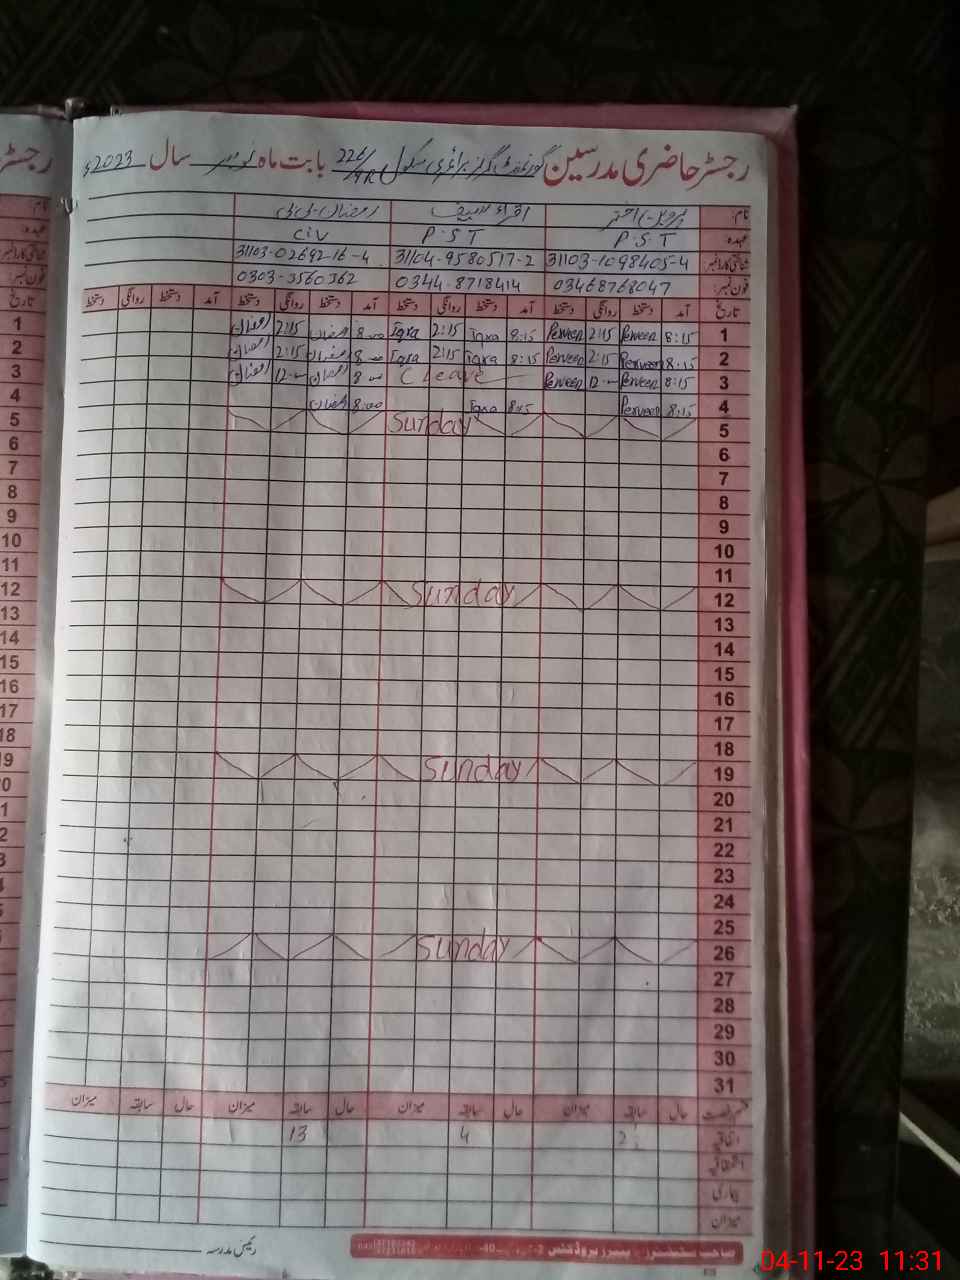 رجسٹر حاضری مدرسین گورنمنٹ گرلز پرائمری سکول 226/9R بابت ماہ نومبر سال 2023ء
نام: پروین اختر اقراء رمضان بی بی
عہدہ: P.S.T P.S.T C.IV
شناختی کارڈ نمبر 31103-1098405-4 31104-9580517-2 31103-02692-16-4
فون نمبر: 03468768047 0344-8718414 0303-3560362
تاریخ آمد دستخط روانگی دستخط آمد دستخط روانگی دستخط آمد دستخط روانگی دستخط آمد دستخط روانگی دستخط تاریخ
1 8:15 Perveen 2:15 Perveen 8:15 Iqra 2:15 Iqra 8:00 رمضان 2:15 رمضان 1
2 8:15 Perveen 2:15 Perveen 8:15 Iqra 2:15 Iqra 8:00 رمضان 2:15 رمضان 2
3 8:15 Perveen 12:00 Perveen C Leave 8:00 رمضان 12:00 رمضان 3
4 8:15 Perveen 8:15 Iqra 8:00 رمضان 4
5 Sunday 5
6 6
7 7
8 8
9 9
10 10
11 11
12 Sunday 12
13 13
14 14
15 15
16 16
17 17
18 18
19 Sunday 19
20
21
22
23
24
25
26 Sunday
27
28
29
30
31
حال سابقہ میزان حال سابقہ میزان حال سابقہ میزان حال سابقہ میزان
اتفاقیہ 2 4 13
استحقاقیہ
بیماری
میزان
رئیس مدرسہ
04-11-23 11:31